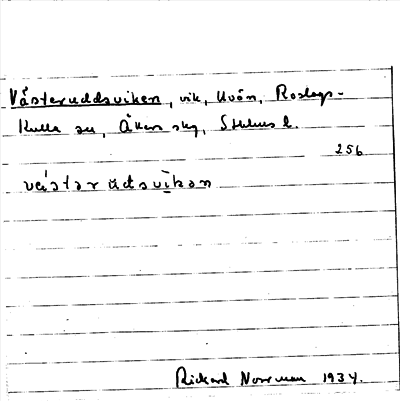 Västeruddsviken, vik, Kvön, Roslags-
Kulla sn, Åkers skg, Sthlms l.
256
västerudsvikan
Rickard Norrman 1934.